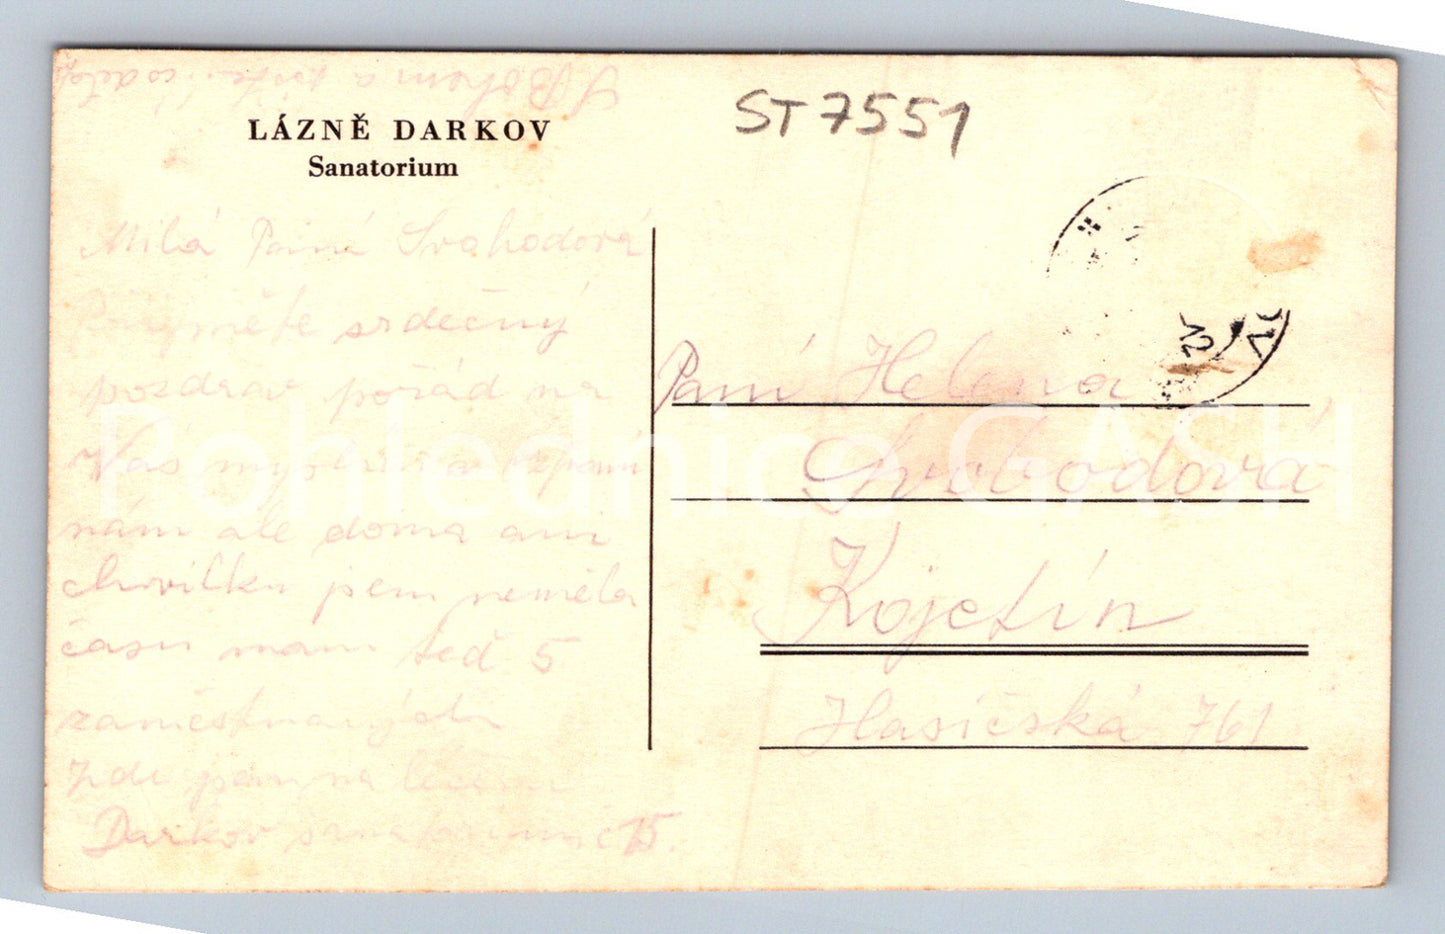 S Bohem a
LÁZNĚ DARKOV
Sanatorium
ST 7551
Milá Paní Svobodová
Přijměte srdečný
pozdrav pořád na
Vás
nám ale doma ani
chvilku jsem neměla
času mám teď 5
zaměstnaných
zde jsem na léčení
Darkov sanatorium č 15.
Paní Helena
Svobodová
Kojetín
Hasičská 761
Pohlednice GASH